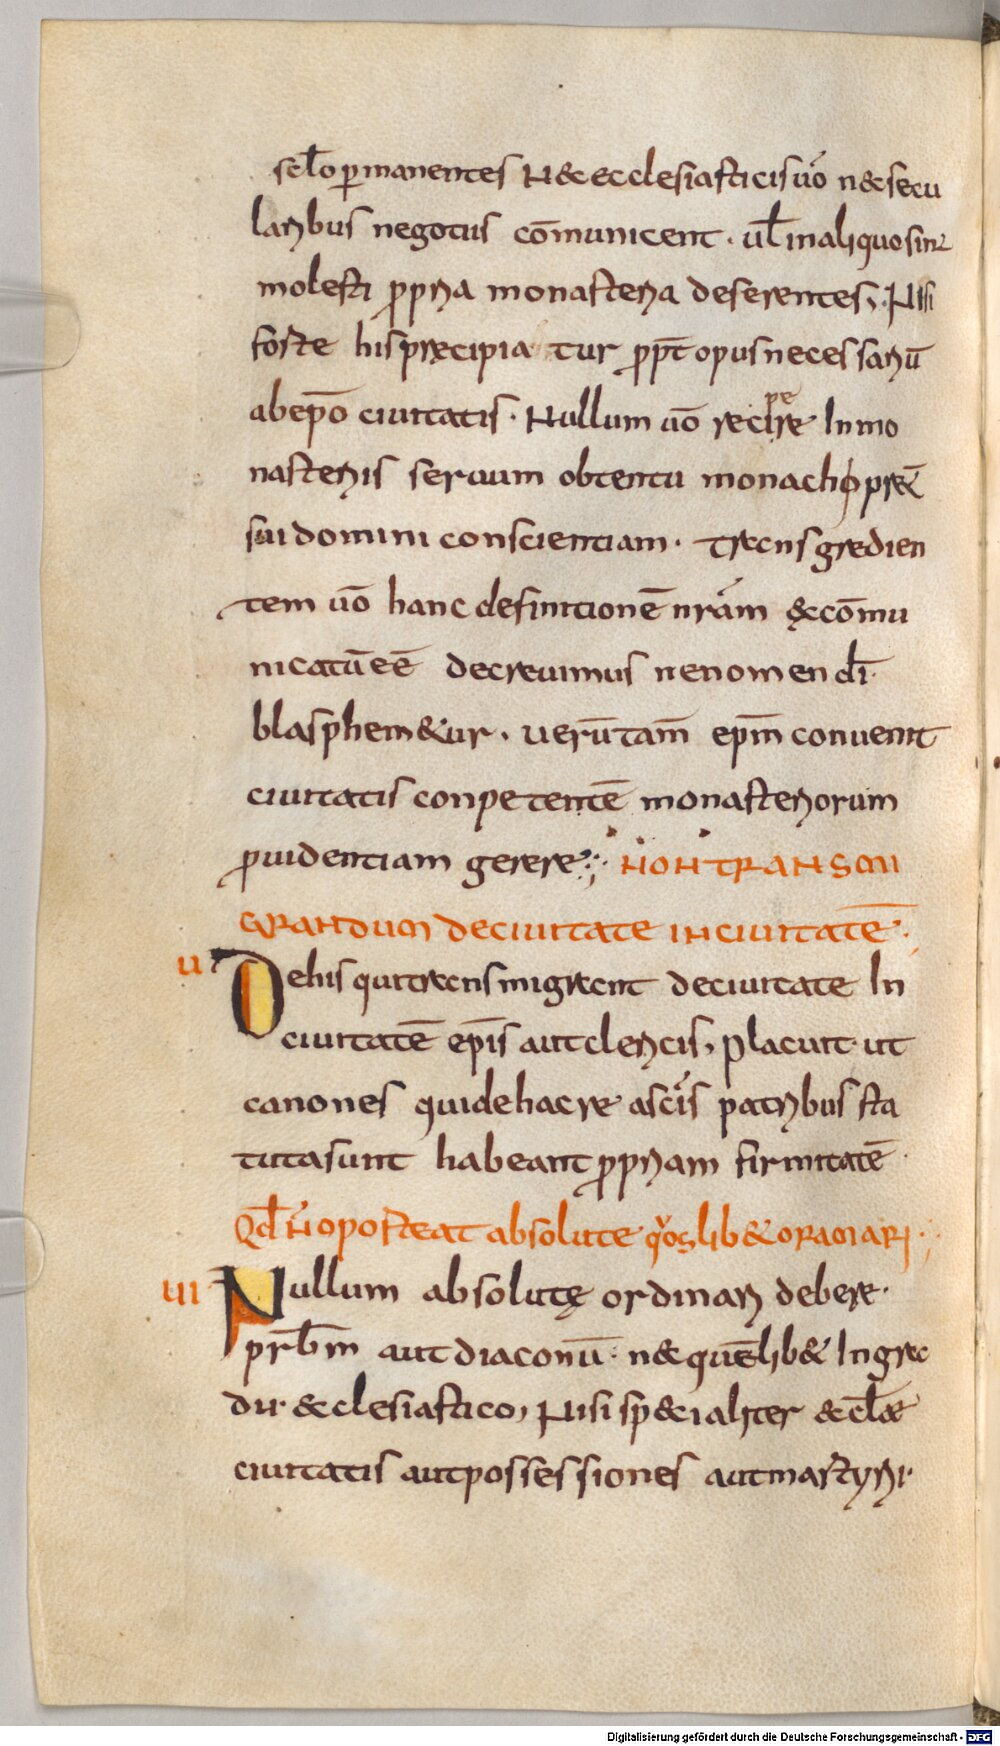 sclo ꝑmanentes N& ecclesiasticis uo n& secu
laribus negotiis cōmunicent · ul̄ in aliquo sint
molesti ꝓpria monasteria deserentes, · Nisi
forte his pręcipiatur ꝓpt̄ opus necessariū
ab ep̄o ciuitatis · Nullum uō recipere In mo
nasteriis seruum obtentu monachi p̄ter
sui domini conscientiam · Transgredien
tem uō hanc definitionē nr̄am excōmu
nicatū eē decreuimus ne nomen dī
blasphem&ur · uerūtam̄ ep̄m conuenit
ciuitatis conpetentē monasteriorum
ꝓuidentiam gerere ;· NON TRANSMI
GRANDUM DE CIUITATE IN CIUITATĒ ·
U De his qui transmigrant de ciuitate In
ciuitatē ep̄is aut clericis, placuit · ut
canones qui de hac re a scīs patribus sta
tuta sunt habeant ꝓpriam firmitatē ·
Qd̄ ñ oporteat absolute q̊slib& ORDINARI ·,
UI Nullum absolutę ordinari debere ·
prb̄m aut diaconū · n& quēlib& In gra
du &clesiastico, Nisi sp&ialiter &cl̄ae
ciuitatis aut possessiones aut martyri ·
Digitalisierung gefördert durch die Deutsche Forschungsgemeinschaft - DFG